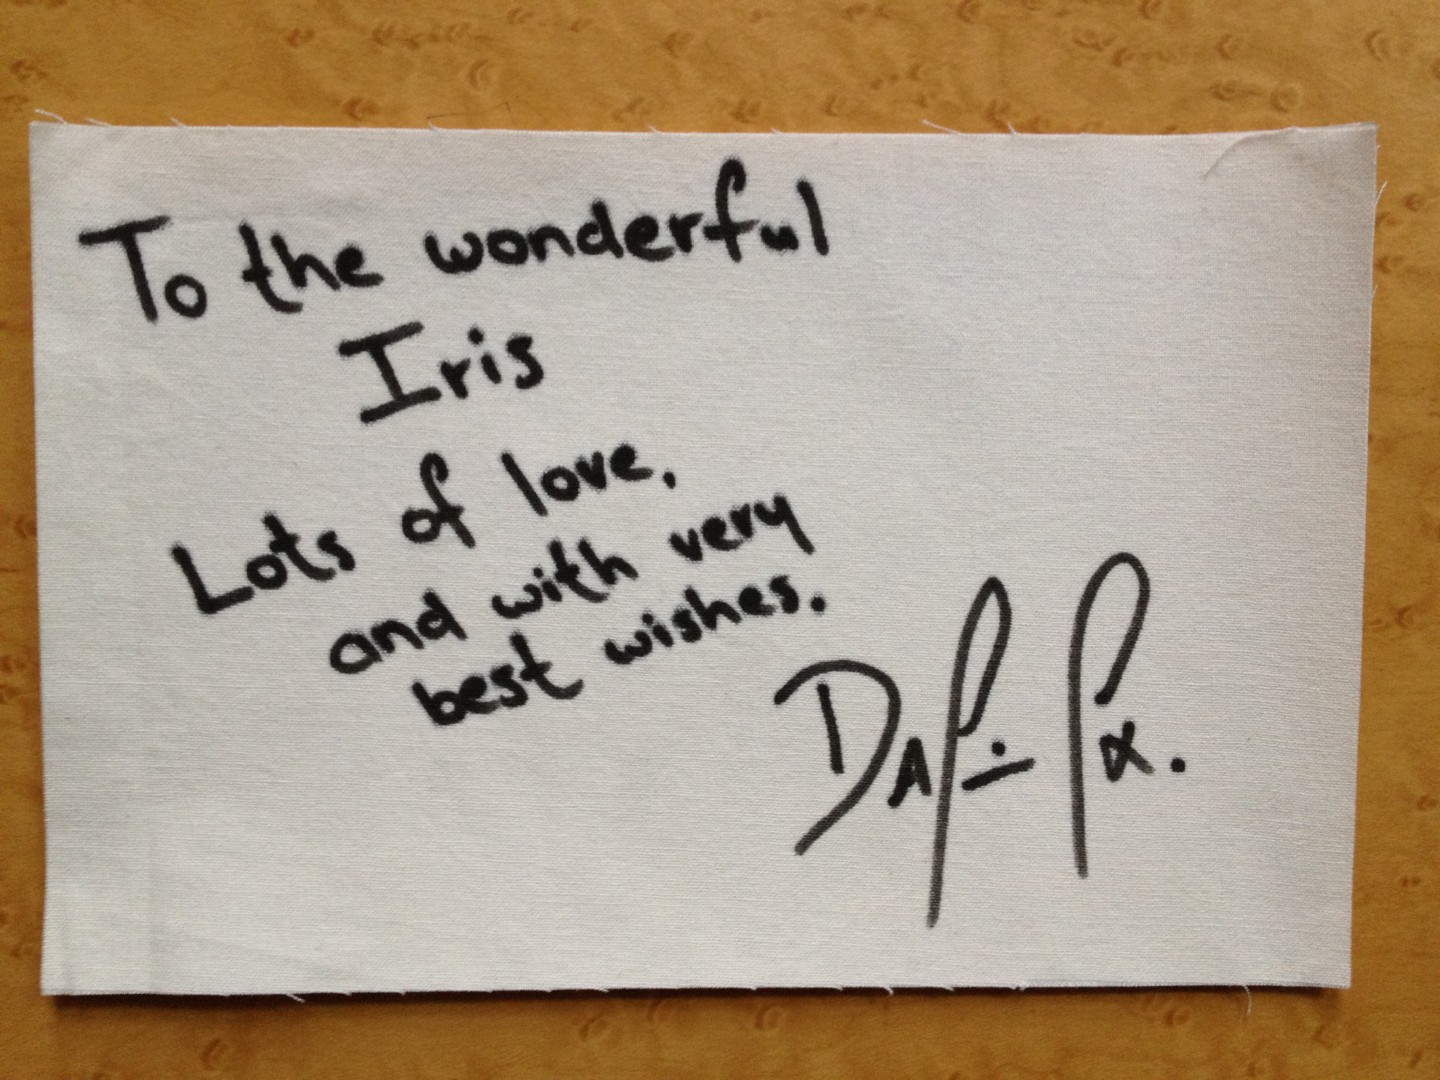 To the wonderful
Iris
Lots of love,
and with very
best wishes.